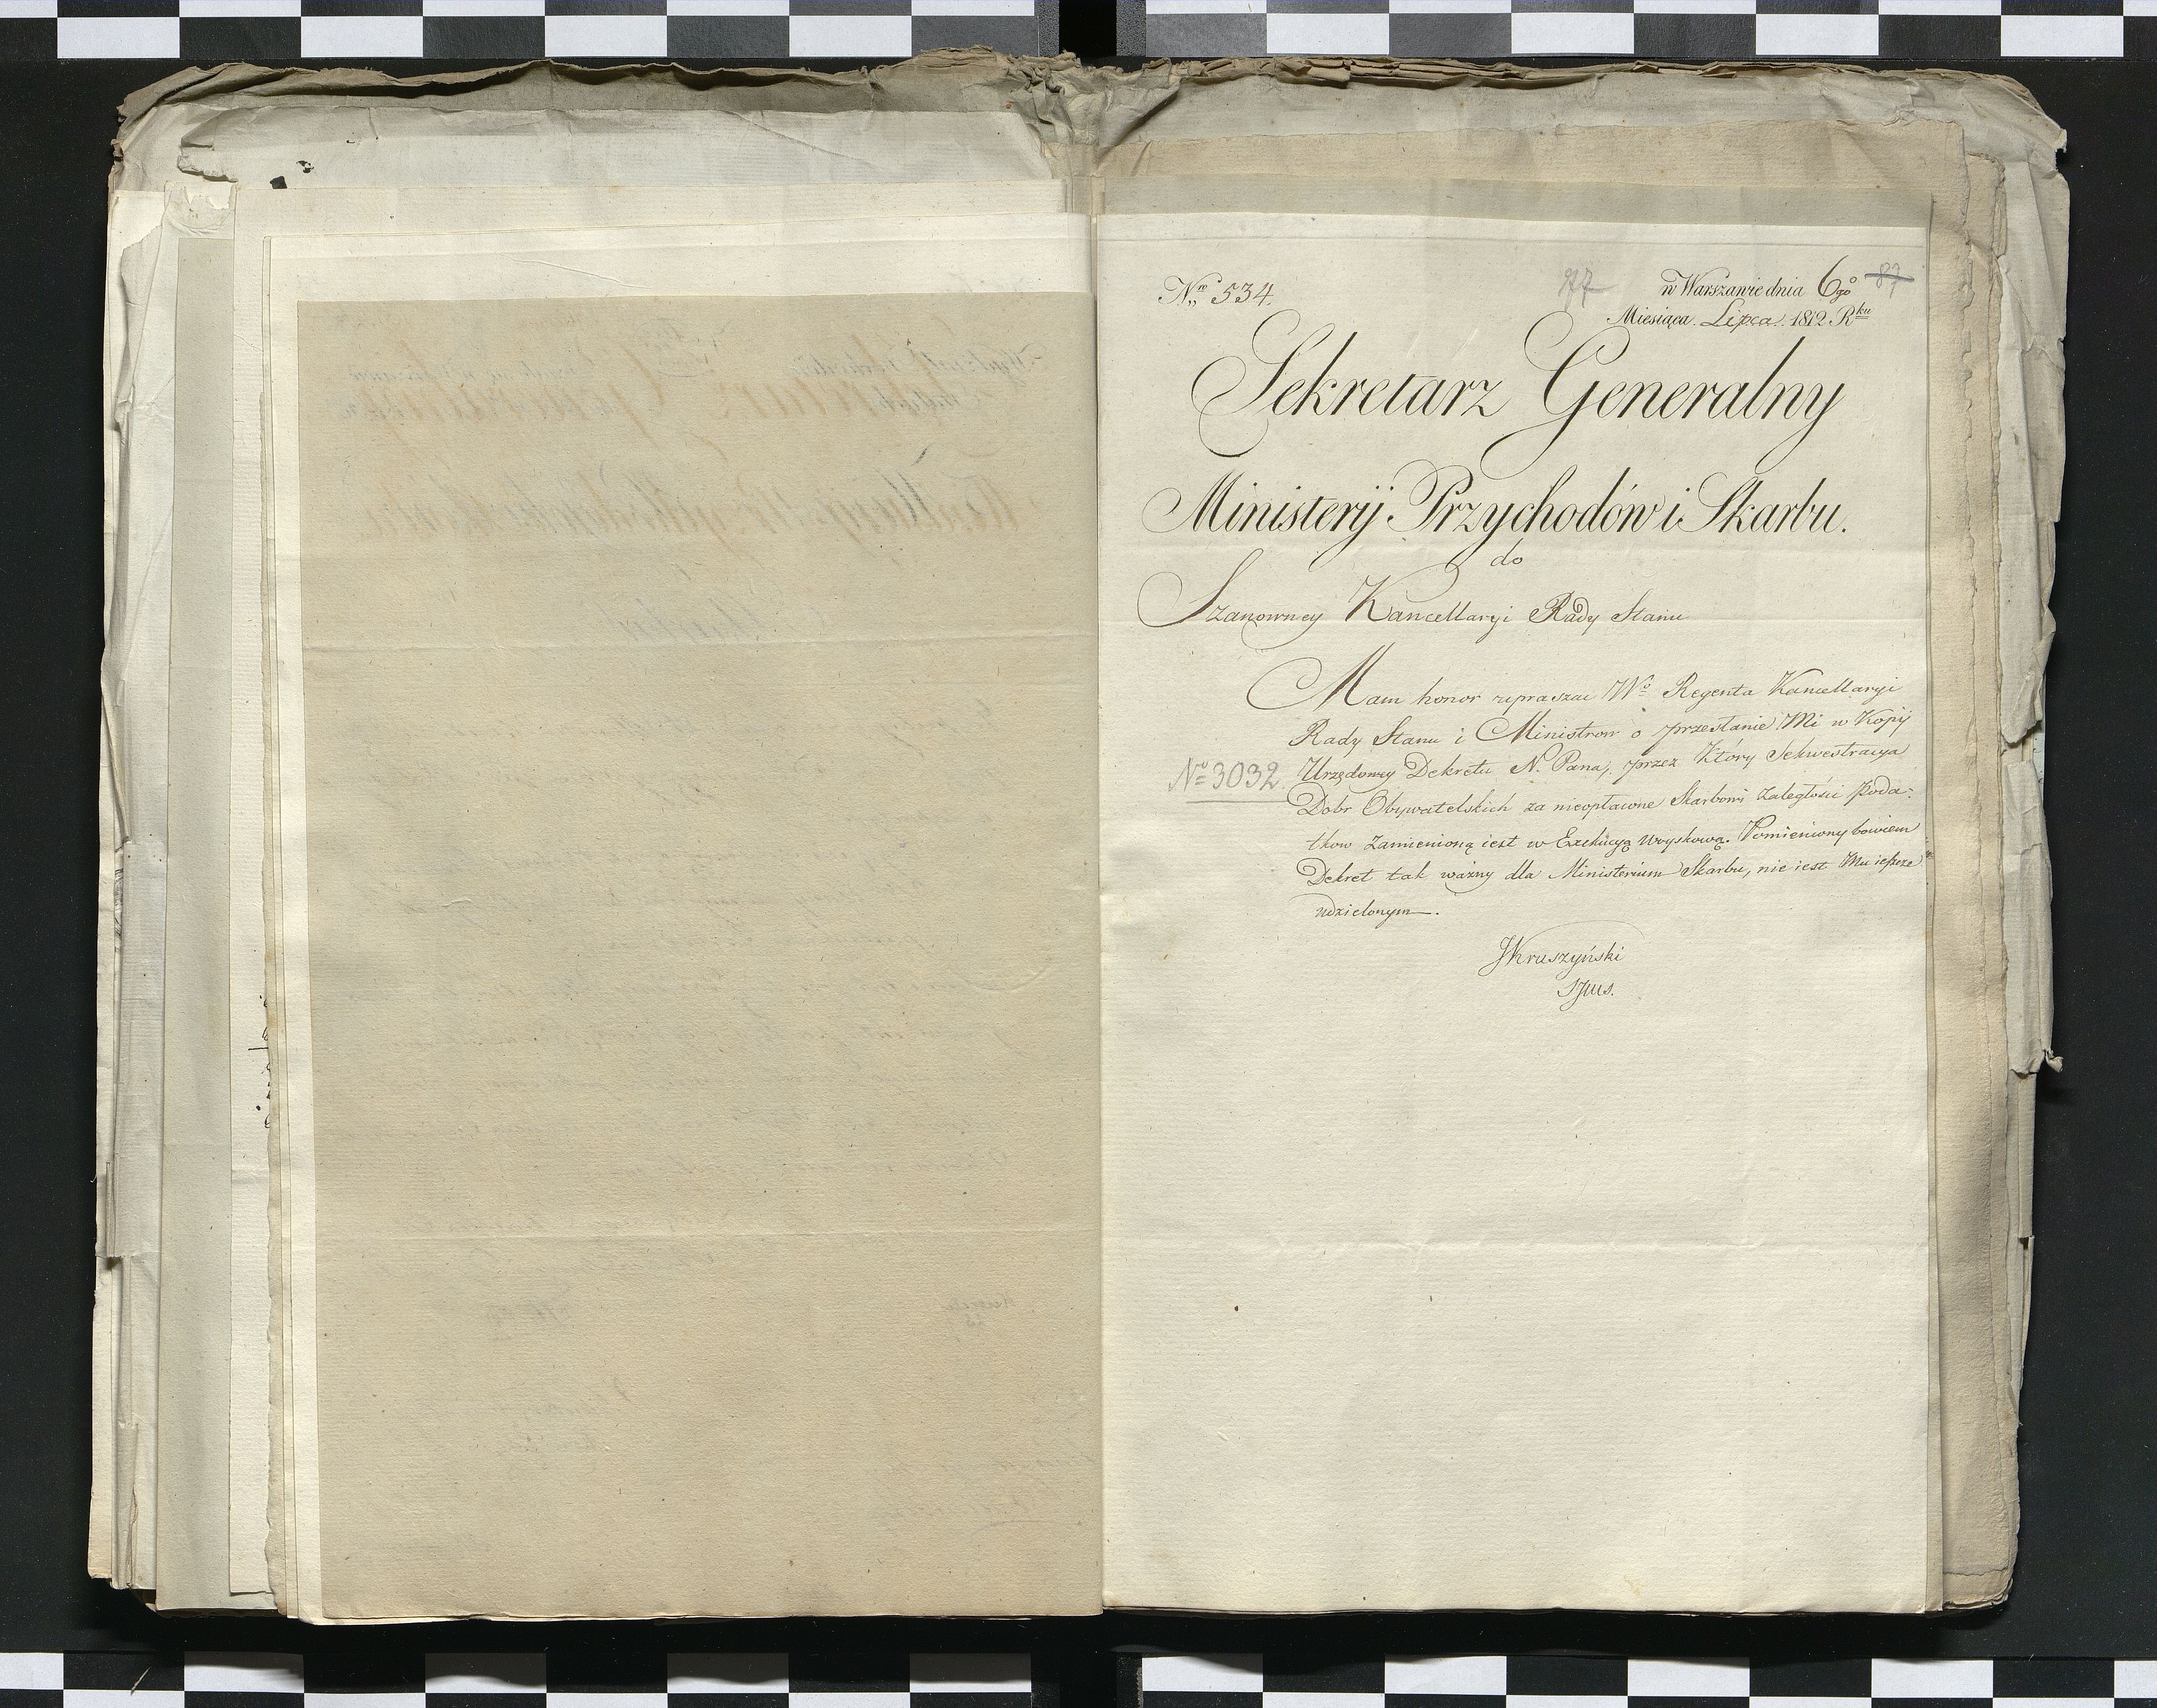 Nro 534.
77
w Warszawie dnia 6go
87
Miesiąca Lipca 1812 Rku
Sekretarz Generalny
Ministerij Przychodów i Skarbu.
do
Szanowney Kancellaryi Rady Stanu
Mam honor upraszac Wo Regenta Kancellaryi
Rady Stanu i Ministrow o przesłanie Mi w Kopij
No 3032
Urzędowey Dekretu N. Pana, przez który Sekwestracya
Dobr Obywatelskich za nieopłacone Skarbowi zaległości Poda-
tkow zamienioną iest w Exekucyą woyskową. Pomieniony bowiem
Dekret tak ważny dla Ministerium Skarbu, nie iest Mu ieszcze
udzielonym.
JKruszyński